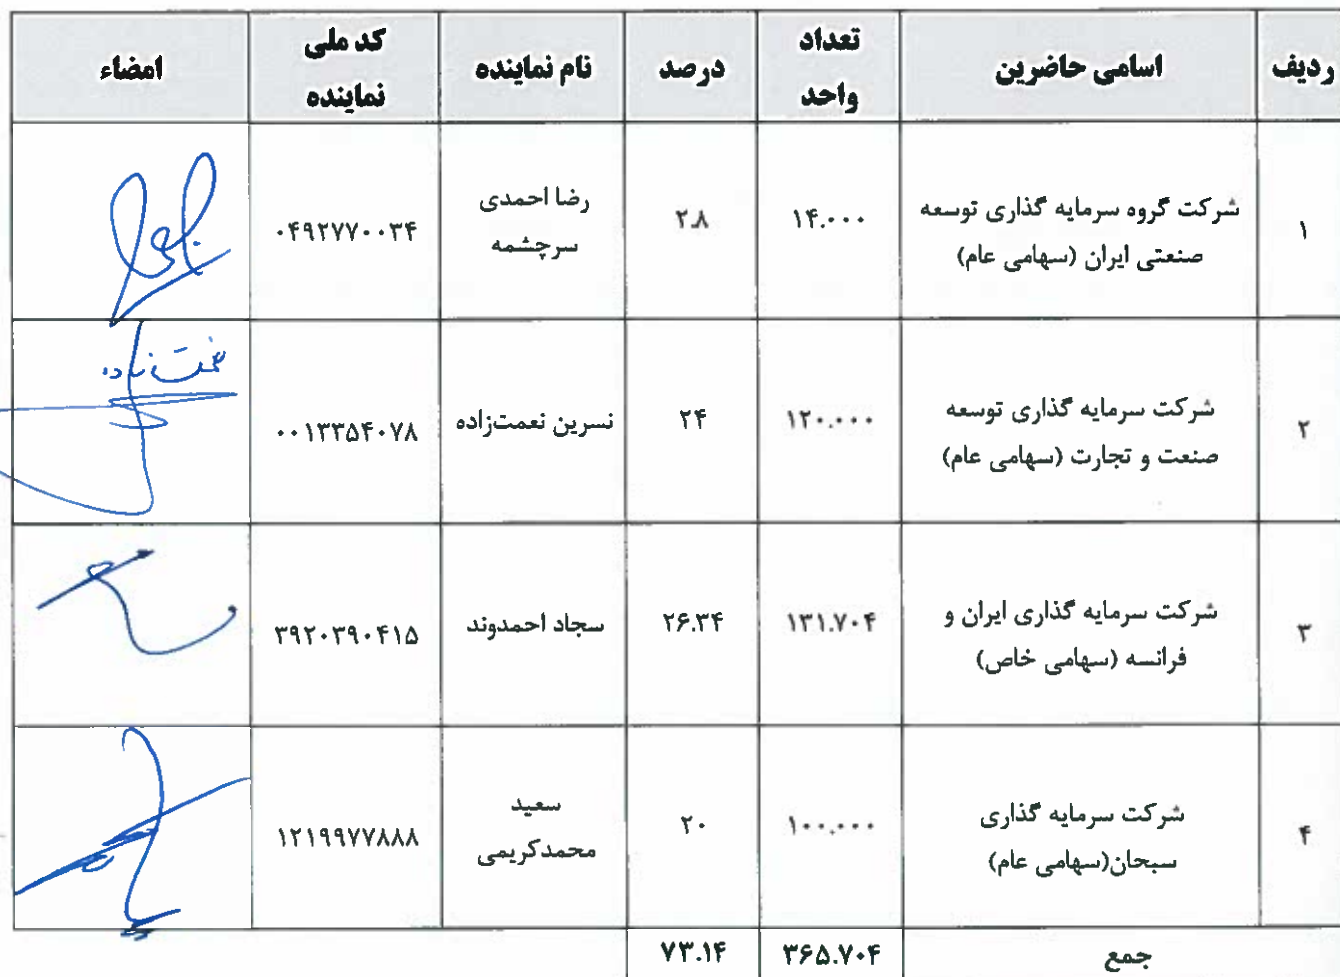 ردیف اسامی حاضرین تعداد واحد درصد نام نماینده کد ملی نماینده امضاء
۱ شرکت گروه سرمایه گذاری توسعه صنعتی ایران (سهامی عام) ۱۴.۰۰۰ ۲.۸ رضا احمدی سرچشمه ۰۴۹۲۷۷۰۰۳۴
۲ شرکت سرمایه گذاری توسعه صنعت و تجارت (سهامی عام) ۱۲۰.۰۰۰ ۲۴ نسرین نعمت‌زاده ۰۰۱۳۳۵۴۰۷۸ نعمت زاده
۳ شرکت سرمایه گذاری ایران و فرانسه (سهامی خاص) ۱۳۱.۷۰۴ ۲۶.۳۴ سجاد احمدوند ۳۹۲۰۳۹۰۴۱۵
۴ شرکت سرمایه گذاری سبحان(سهامی عام) ۱۰۰.۰۰۰ ۲۰ سعید محمدکریمی ۱۲۱۹۹۷۷۸۸۸
جمع ۳۶۵.۷۰۴ ۷۳.۱۴